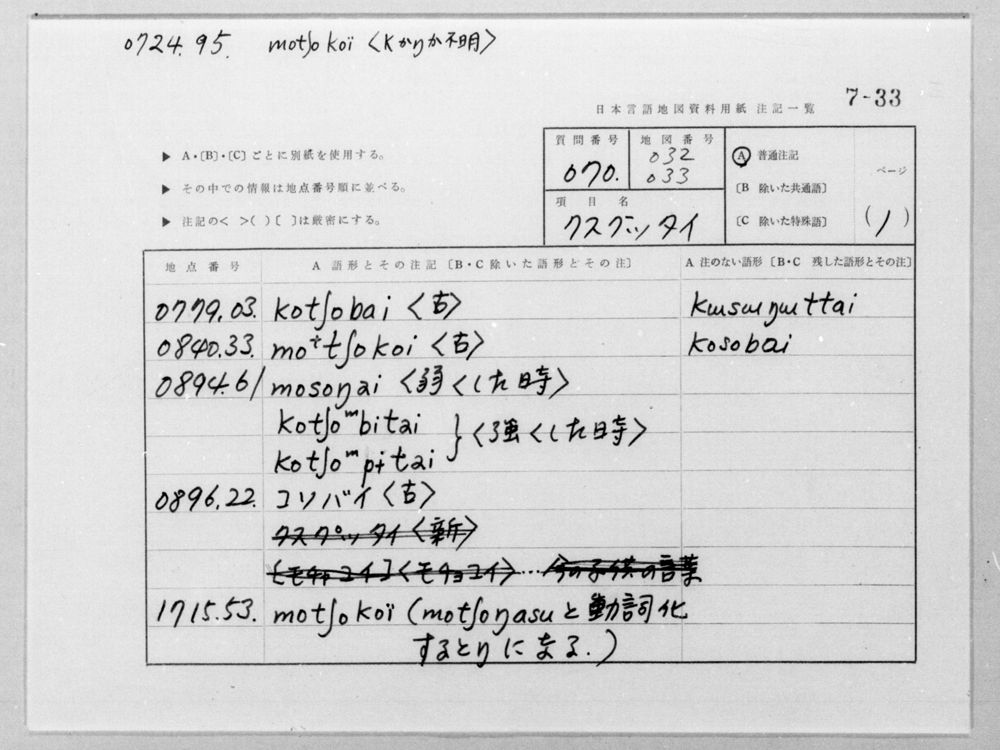 0724.95. motʃokoï〈Kかŋか不明〉
7-33
日本言語地図資料用紙 注記一覧
▶ A・〔B〕・〔C〕ごとに別紙を使用する。
▶ その中での情報は地点番号順に並べる。
▶ 注記の< >( )〔 〕は厳密にする。
質問番号
070.
地図番号
032
033
項目名
クスグッタイ
Ⓐ 普通注記
〔B 除いた共通語〕
〔C 除いた特殊語〕
ページ
(1)
地点番号 A 語形とその注記〔B・C除いた語形とその注〕 A 注のない語形〔B・C 残した語形とその注〕
0779.03. kotʃobai〈古〉 kɯsɯŋɯttai
0840.33. moᵗtʃokoi〈古〉 kosobai
0894.61 mosoŋai〈弱くした時〉
kotʃoᵐbitai
kotʃoᵐpɨtai }〈強くした時〉
0896.22. コソバイ〈古〉
クスグッタイ〈新〉
[モチョコイ]〈モチョコイ〉…今の子供の言葉
1715.53. motʃokoï (motʃoŋasuと動詞化
するとŋになる.)